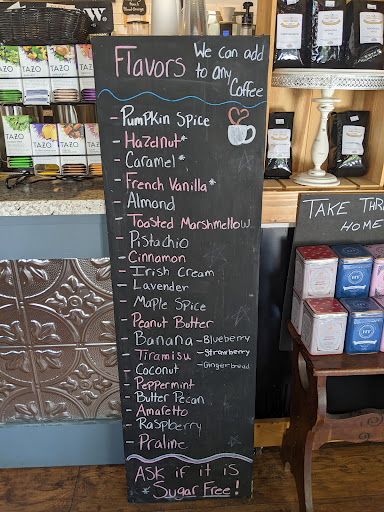 Flavors
We can add
to any
Coffee
- Pumpkin Spice
- Hazelnut*
- Caramel*
- French Vanilla*
- Almond
- Toasted Marshmellow
- Pistachio
- Cinnamon
- Irish Cream
- Lavender
- Maple Spice
- Peanut Butter
- Banana - Blueberry
- Tiramisu - Strawberry
- Coconut - Gingerbread
- Peppermint
- Butter Pecan
- Amaretto
- Raspberry
- Praline
Ask if it is
*Sugar Free!
TAZO TAZO TAZO
TAZO TAZO TAZO
TAKE
HOME